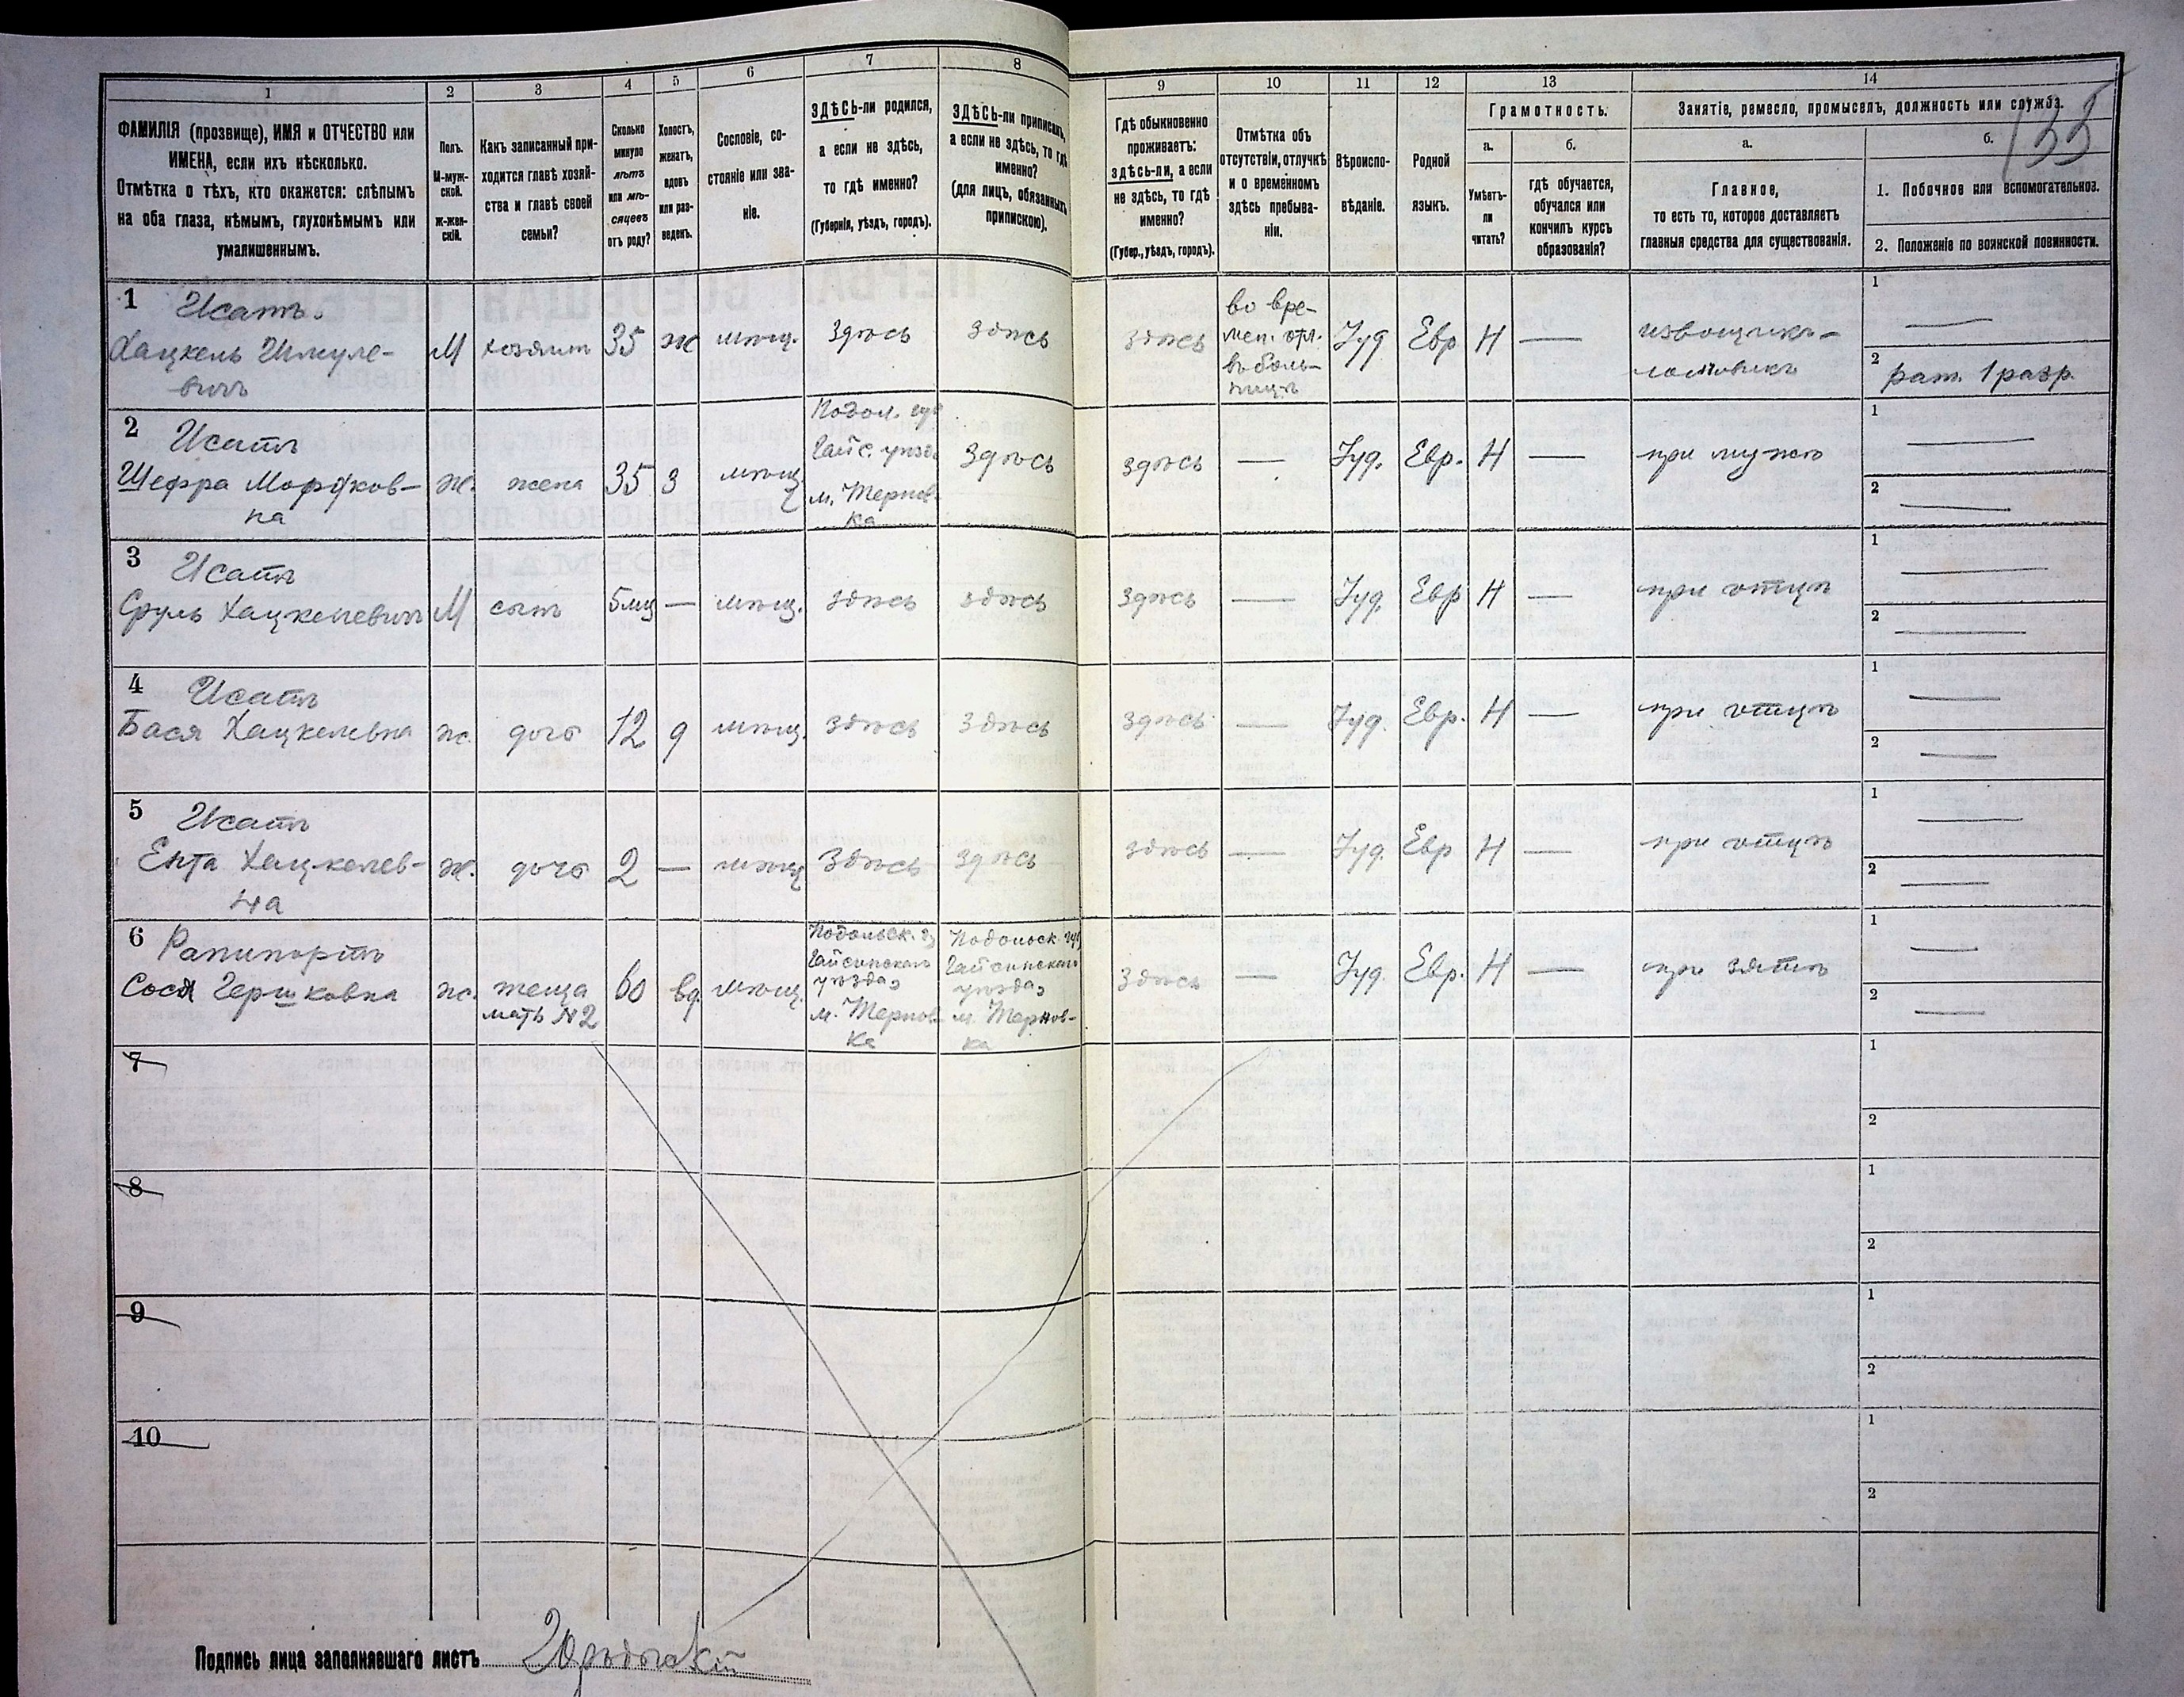 1
2
3
4
5
6
7
8
9
10
11
12
13
14
133
ФАМИЛІЯ (прозвище), ИМЯ и ОТЧЕСТВО или
ИМЕНА, если ихъ нѣсколько.
Отмѣтка о тѣхъ, кто окажется: слѣпымъ
на оба глаза, нѣмымъ, глухонѣмымъ или
умалишеннымъ.
Полъ.
М-муж-
ской.
Ж-жен-
скій.
Какъ записанный при-
ходится главѣ хозяй-
ства и главѣ своей
семьи?
Сколько
минуло
лѣтъ
или мѣ-
сяцевъ
отъ роду?
Холостъ,
женатъ,
вдовъ
или раз-
веденъ.
Сословіе, со-
стояніе или зва-
ніе.
ЗДѢСЬ-ли родился,
а если не здѣсь,
то гдѣ именно?
(Губернія, уѣздъ, городъ).
ЗДѢСЬ-ли приписанъ,
а если не здѣсь, то гдѣ
именно?
(для лицъ, обязанныхъ
припискою).
Гдѣ обыкновенно
проживаетъ:
здѣсь-ли, а если
не здѣсь, то гдѣ
именно?
(Губер., уѣздъ, городъ).
Отмѣтка объ
отсутствіи, отлучкѣ
и о временномъ
здѣсь пребыва-
ніи.
Вѣроиспо-
вѣданіе.
Родной
языкъ.
Грамотность.
а.
Умѣетъ-
ли
читать?
б.
гдѣ обучается,
обучался или
кончилъ курсъ
образованія?
Занятіе, ремесло, промыселъ, должность или служба.
а.
Главное,
то есть то, которое доставляетъ
главныя средства для существованія.
б.
1. Побочное или вспомогательное.
2. Положеніе по воинской повинности.
1 Исатъ.
Хацкель Шмуле-
вичъ
М
хозяинъ
35
ж
мѣщ.
Здѣсь
здѣсь
здѣсь
во вре-
мен. отл.
въ боль-
ницѣ
Іуд
Евр
Н
—
извощикъ-
1 —
2 рат. 1 разр.
2 Исатъ
Шефра Моршков-
на
ж.
жена
35
з
мѣщ
Подол. губ
Гайс. уѣзд.
м. Тернов-
ка
Здѣсь
здѣсь
—
Іуд.
Евр.
Н
—
при мужѣ
1 —
2 —
3 Исатъ
Сруль Хацкелевичъ
М
сынъ
5 мц
—
мѣщ.
здѣсь
здѣсь
здѣсь
—
Іуд.
Евр
Н
—
при отцѣ
1 —
2 —
4 Исатъ
Бася Хацкелевна
ж.
дочь
12
д
мѣщ.
здѣсь
здѣсь
здѣсь
—
Іуд.
Евр.
Н
—
при отцѣ
1 —
2 —
5 Исатъ
Ента Хацкелев-
на
ж.
дочь
2
—
мѣщ
Здѣсь
здѣсь
здѣсь
—
Іуд.
Евр
Н
—
при отцѣ
1 —
2 —
6 Рапипортъ
Сося Гершковна
ж.
теща
мать №2
60
вд.
мѣщ.
Подольск. г.
Гайсинскаго
уѣзда,
м. Тернов-
ка
Подольск. губ
Гайсинскаго
уѣзда,
м. Тернов-
ка
здѣсь
—
Іуд.
Евр.
Н
—
при зятѣ
1 —
2 —
7
1
2
8
1
2
9
1
2
10
1
2
Подпись лица заполнявшаго листъ